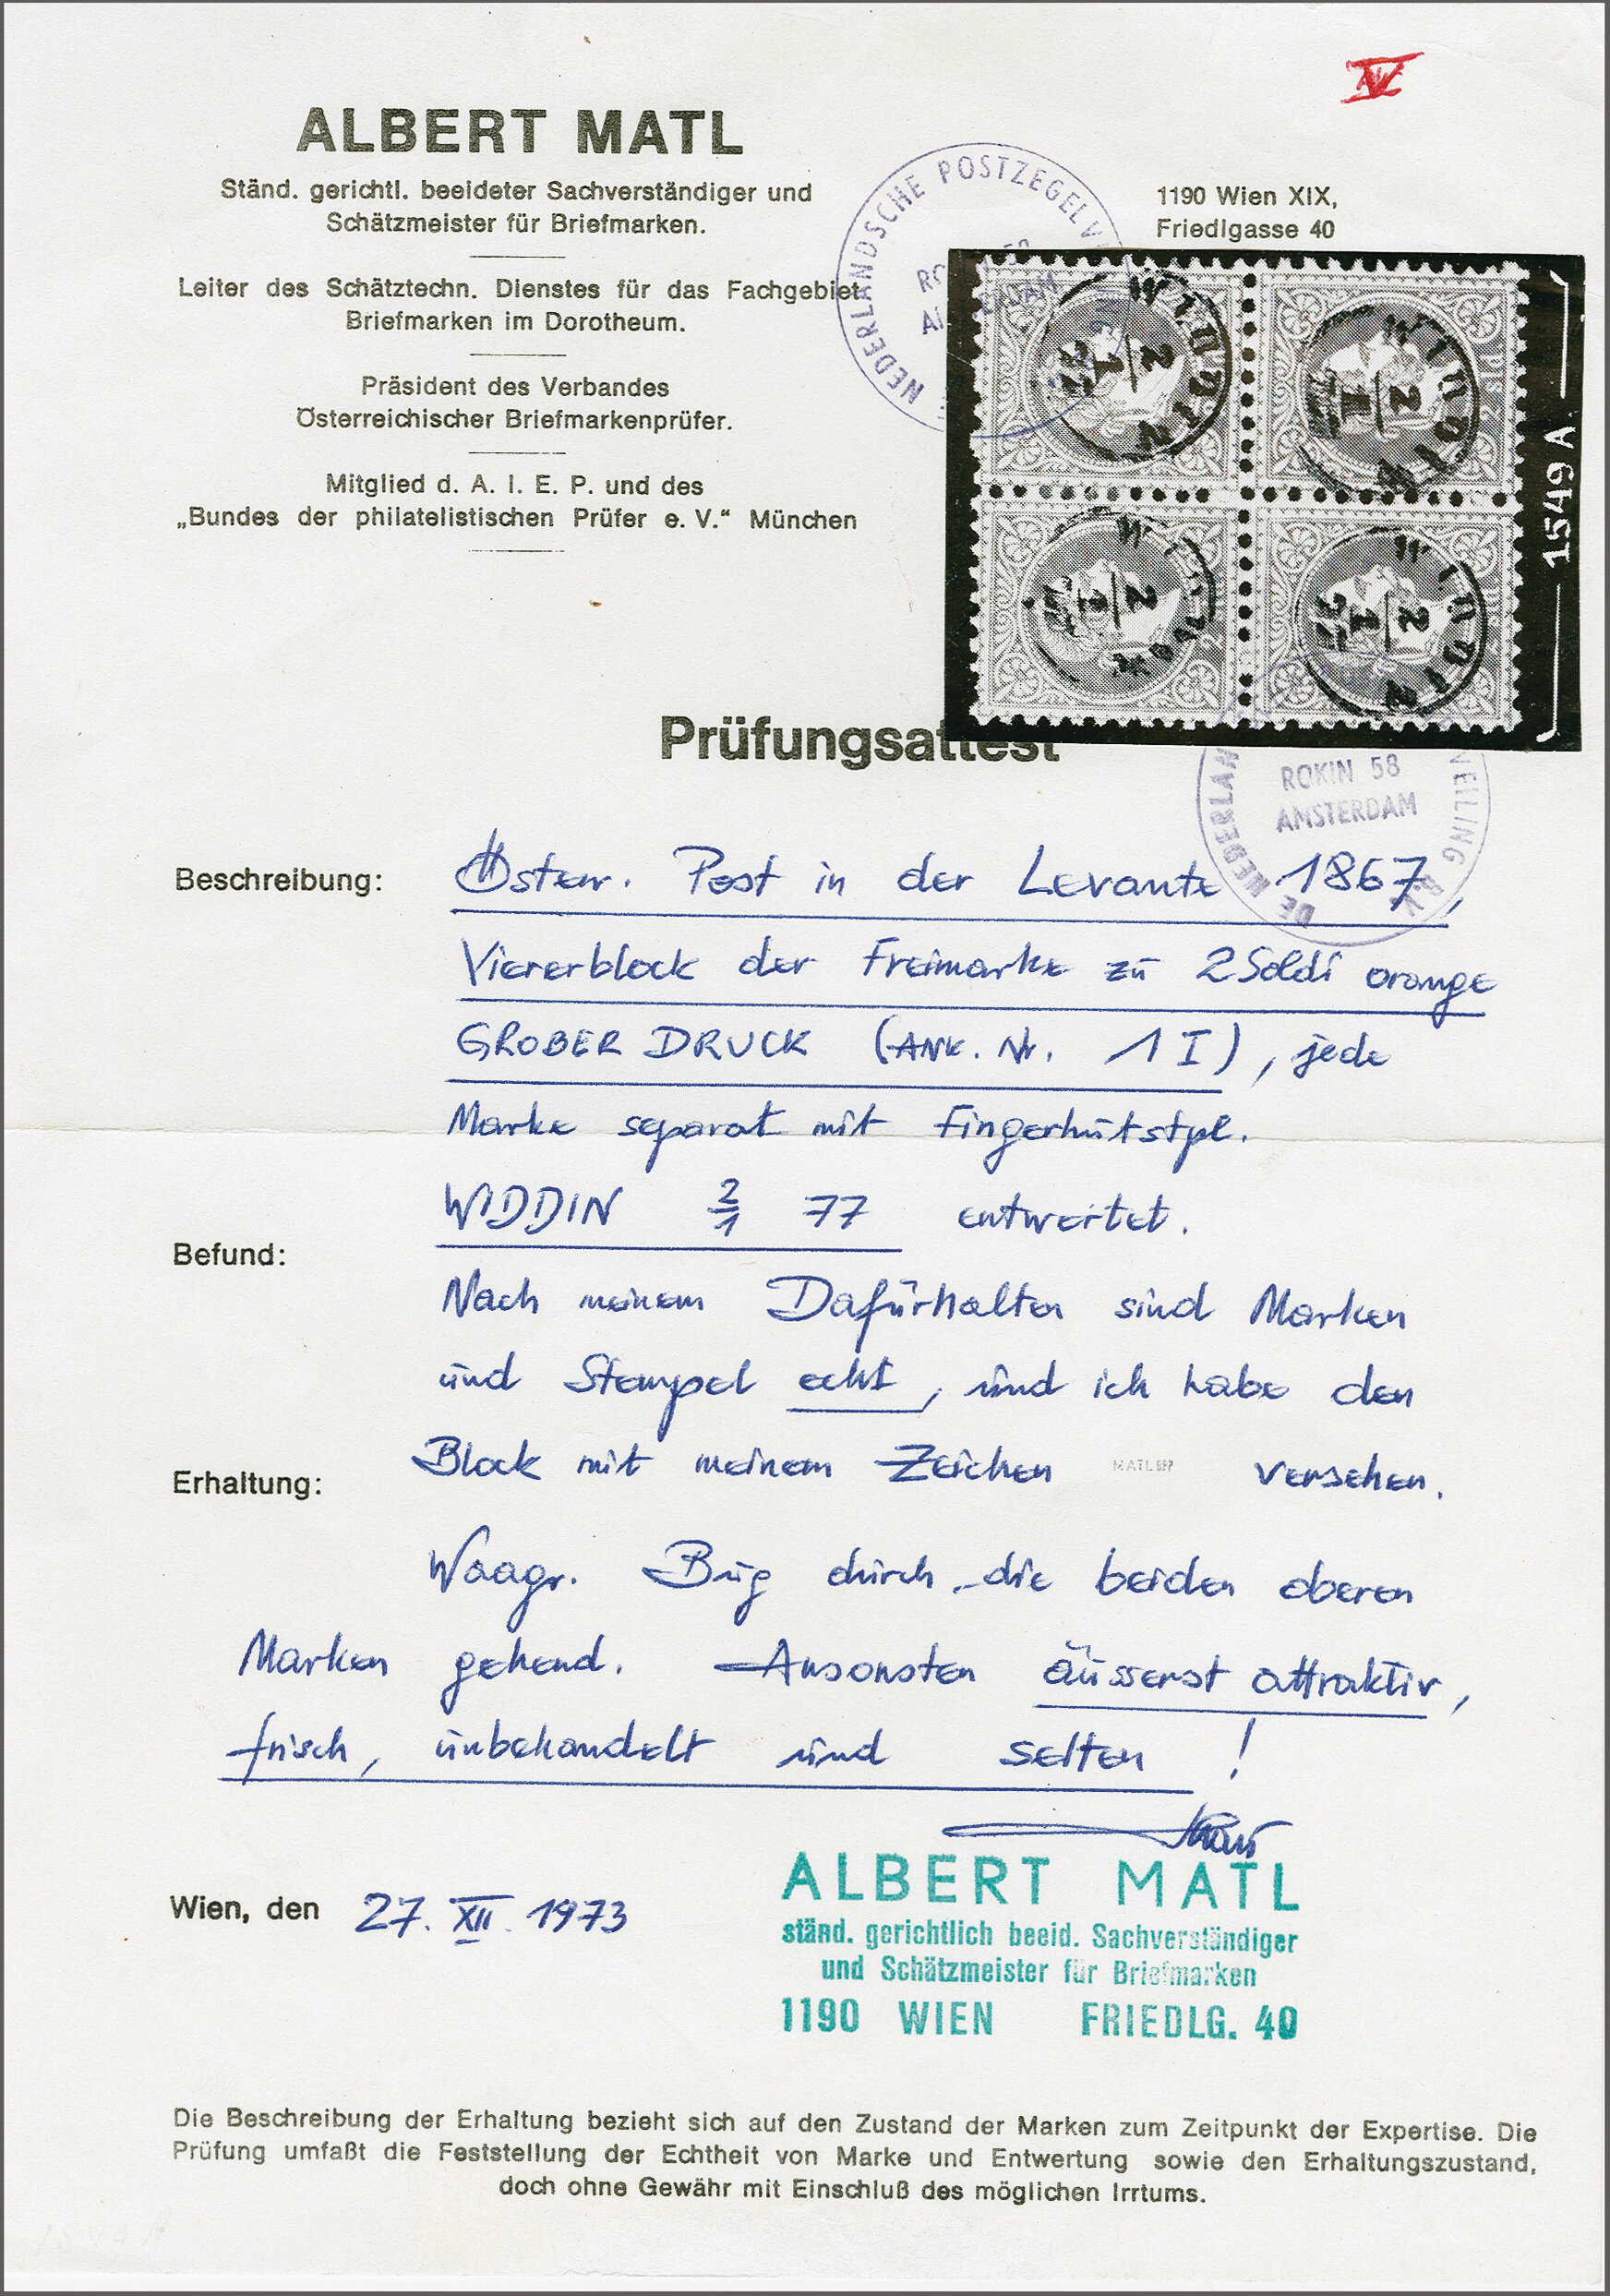 IV
ALBERT MATL
Ständ. gerichtl. beeideter Sachverständiger und
Schätzmeister für Briefmarken.
Leiter des Schätztechn. Dienstes für das Fachgebiet
Briefmarken im Dorotheum.
Präsident des Verbandes
Österreichischer Briefmarkenprüfer.
Mitglied d. A. I. E. P. und des
„Bundes der philatelistischen Prüfer e. V.“ München
1190 Wien XIX,
Friedlgasse 40
NEDERLANDSCHE POSTZEGELV
58
WIDDIN
2
1
77
WIDDIN
2
1
WIDDIN
2
1
WIDDIN
2
1
77
1549 A
Prüfungsattest
DE NEDERLAN VEILING B.V.
ROKIN 58
AMSTERDAM
Beschreibung:
Österr. Post in der Levante 1867,
Viererblock der Freimarke zu 2 Soldi orange
GROBER DRUCK (ANK. Nr. 1 I), jede
Marke separat mit Fingerhutstpl.
WIDDIN 2/1 77 entwertet.
Befund:
Nach meinem Dafürhalten sind Marken
und Stempel echt, und ich habe den
Block mit meinem Zeichen MATL versehen.
Erhaltung:
Waagr. Bug durch die beiden oberen
Marken gehend. Ansonsten äusserst attraktiv,
frisch, unbehandelt und selten !
Wien, den 27. XII. 1973
ALBERT MATL
ständ. gerichtlich beeid. Sachverständiger
und Schätzmeister für Briefmarken
1190 WIEN FRIEDLG. 40
Die Beschreibung der Erhaltung bezieht sich auf den Zustand der Marken zum Zeitpunkt der Expertise. Die
Prüfung umfaßt die Feststellung der Echtheit von Marke und Entwertung sowie den Erhaltungszustand,
doch ohne Gewähr mit Einschluß des möglichen Irrtums.